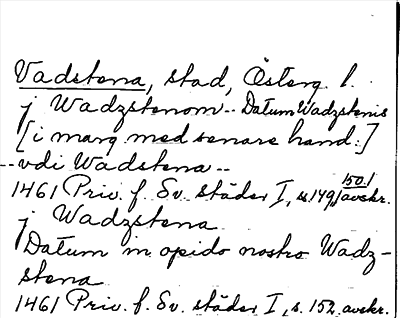 Vadstena, stad, Österg. l.
j Wadzstenom -- Datum Wadzstenis
[i marg med senare hand:]
-- vdi Wadstena --
1461 Priv. f. Sv. städer I, s. 149, 150/ avskr.
j Wadzstena
Datum in opido nostro Wadz-
stena
1461 Priv. f. Sv. städer I, s. 152, avskr.